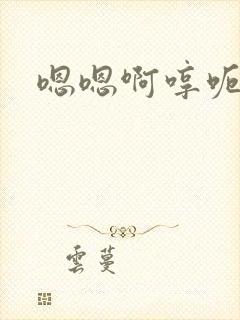 嗯嗯啊哼呃
雲蔓